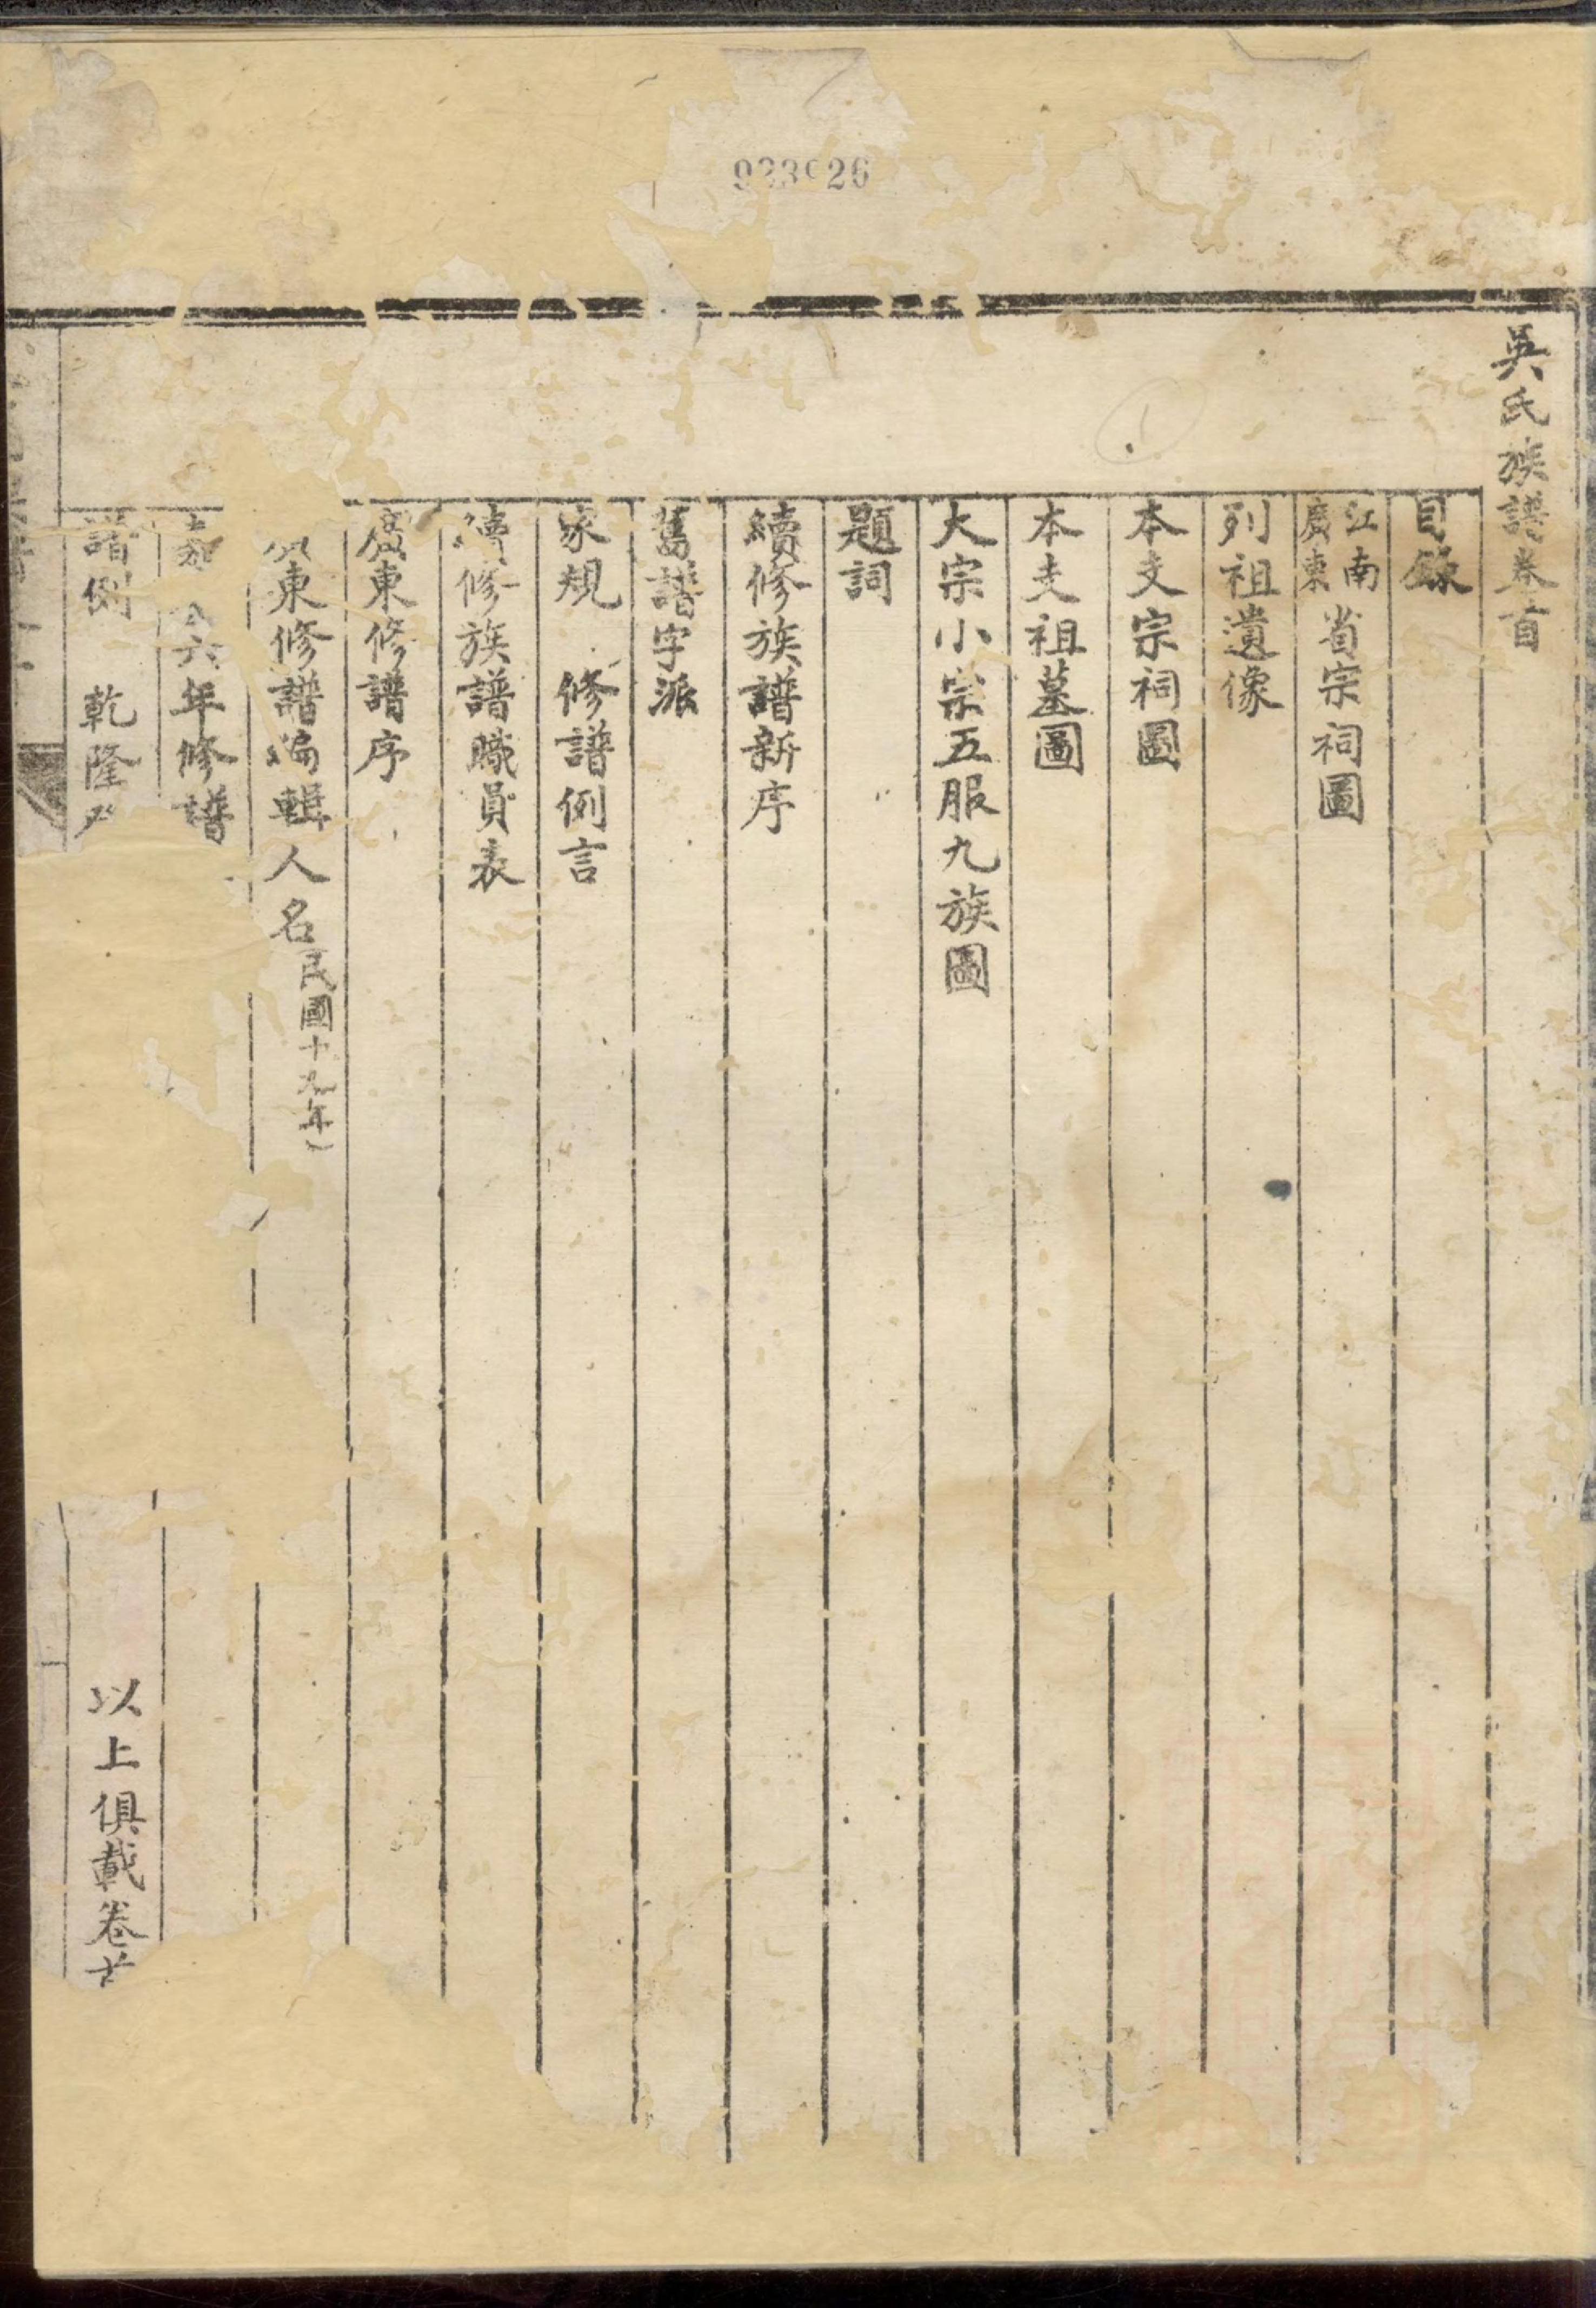 吳氏族譜卷首
目錄
江南
廣東
省宗祠圖
列祖遺像
本支宗祠圖
本支祖墓圖
大宗小宗五服九族圖
題詞
續修族譜新序
舊譜字派
家規 修譜例言
續修族譜職員表
廣東修譜序
廣東修譜編輯人名民國十九年)
六年修譜
譜例 乾隆
以上俱載卷
26